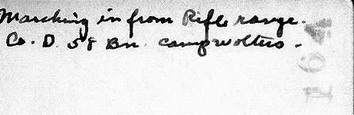 Marching in from Rifle range.
Co. D. 58 Bn. Camp Wolters -
164